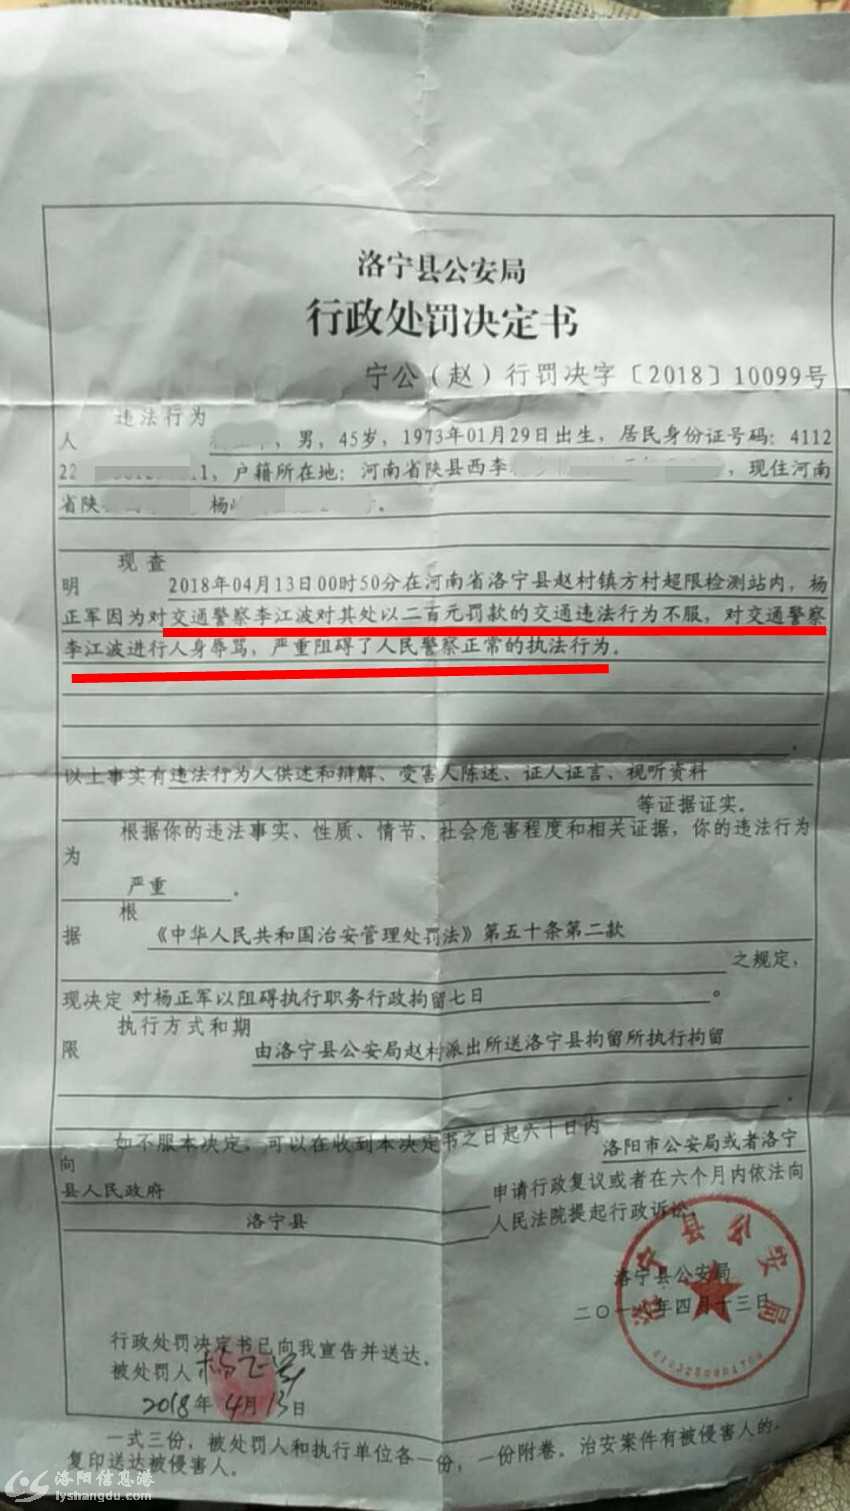 洛宁县公安局
行政处罚决定书
宁公（赵）行罚决字〔2018〕10099号
违法行为
人 ，男，45岁，1973年01月29日出生，居民身份证号码：4112
22 1，户籍所在地：河南省陕县西李 ，现住河南
省陕 杨 。
现查
明 2018年04月13日00时50分在河南省洛宁县赵村镇方村超限检测站内，杨
正军因为对交通警察李江波对其处以二百元罚款的交通违法行为不服，对交通警察
李江波进行人身辱骂，严重阻碍了人民警察正常的执法行为。
。
以上事实有违法行为人供述和辩解、受害人陈述、证人证言、视听资料
等证据证实。
根据你的违法事实、性质、情节、社会危害程度和相关证据，你的违法行为
为
严重 。
根
据 《中华人民共和国治安管理处罚法》第五十条第二款
之规定，
现决定 对杨正军以阻碍执行职务行政拘留七日 。
执行方式和期
限 由洛宁县公安局赵村派出所送洛宁县拘留所执行拘留
。
如不服本决定，可以在收到本决定书之日起六十日内 洛阳市公安局或者洛宁
向
县人民政府 申请行政复议或者在六个月内依法向
洛宁县 人民法院提起行政诉讼。
洛宁县公安局
洛宁县公安局
二〇一八年四月十三日
行政处罚决定书已向我宣告并送达。
被处罚人 杨正军
2018年4月13日
一式三份，被处罚人和执行单位各一份，一份附卷。治安案件有被侵害人的，
复印送达被侵害人。
洛阳信息港
lyshangdu.com